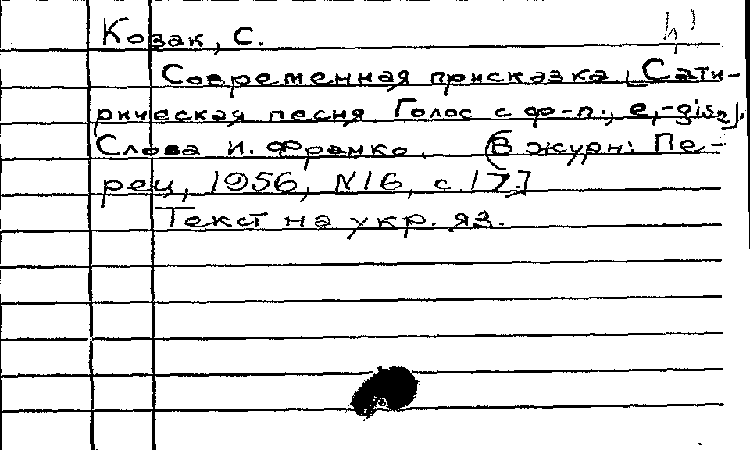 Козак, С.
Современная присказка. [Сати-
рическая песня. Голос с фо-п., e₁-gis₂].
Слова И. Франко. [В журн: Пе-
рец, 1956, №16, с. 17.]
Текст на укр. яз.